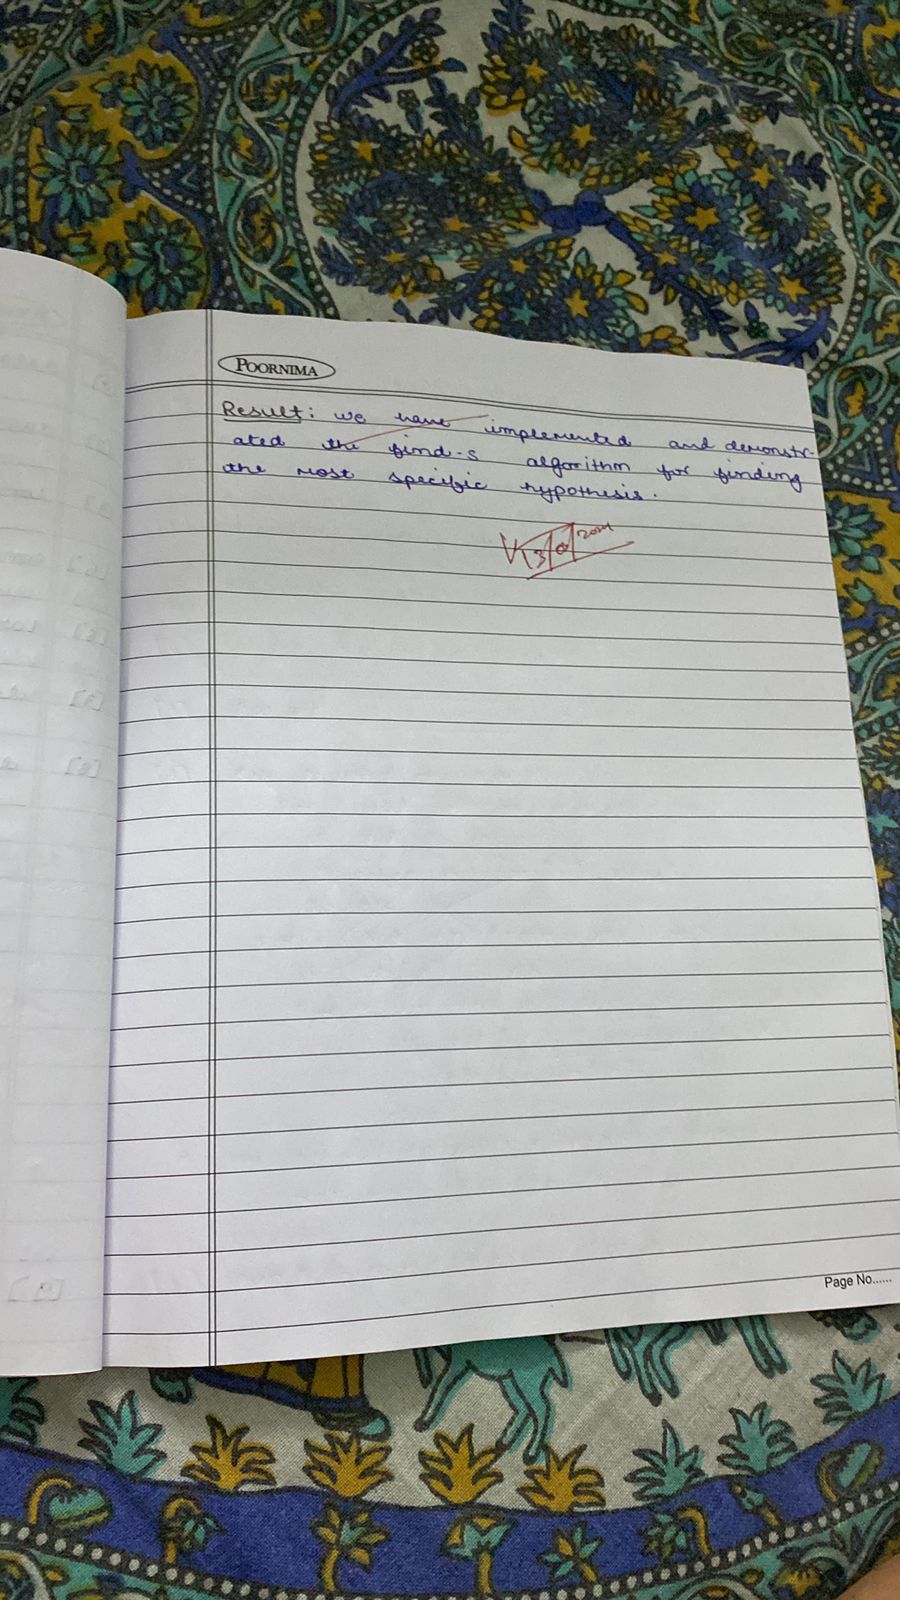 POORNIMA
Result: we have implemented and demonstr-
ated the find-s algorithm for finding
the most specific hypothesis.
Page No......